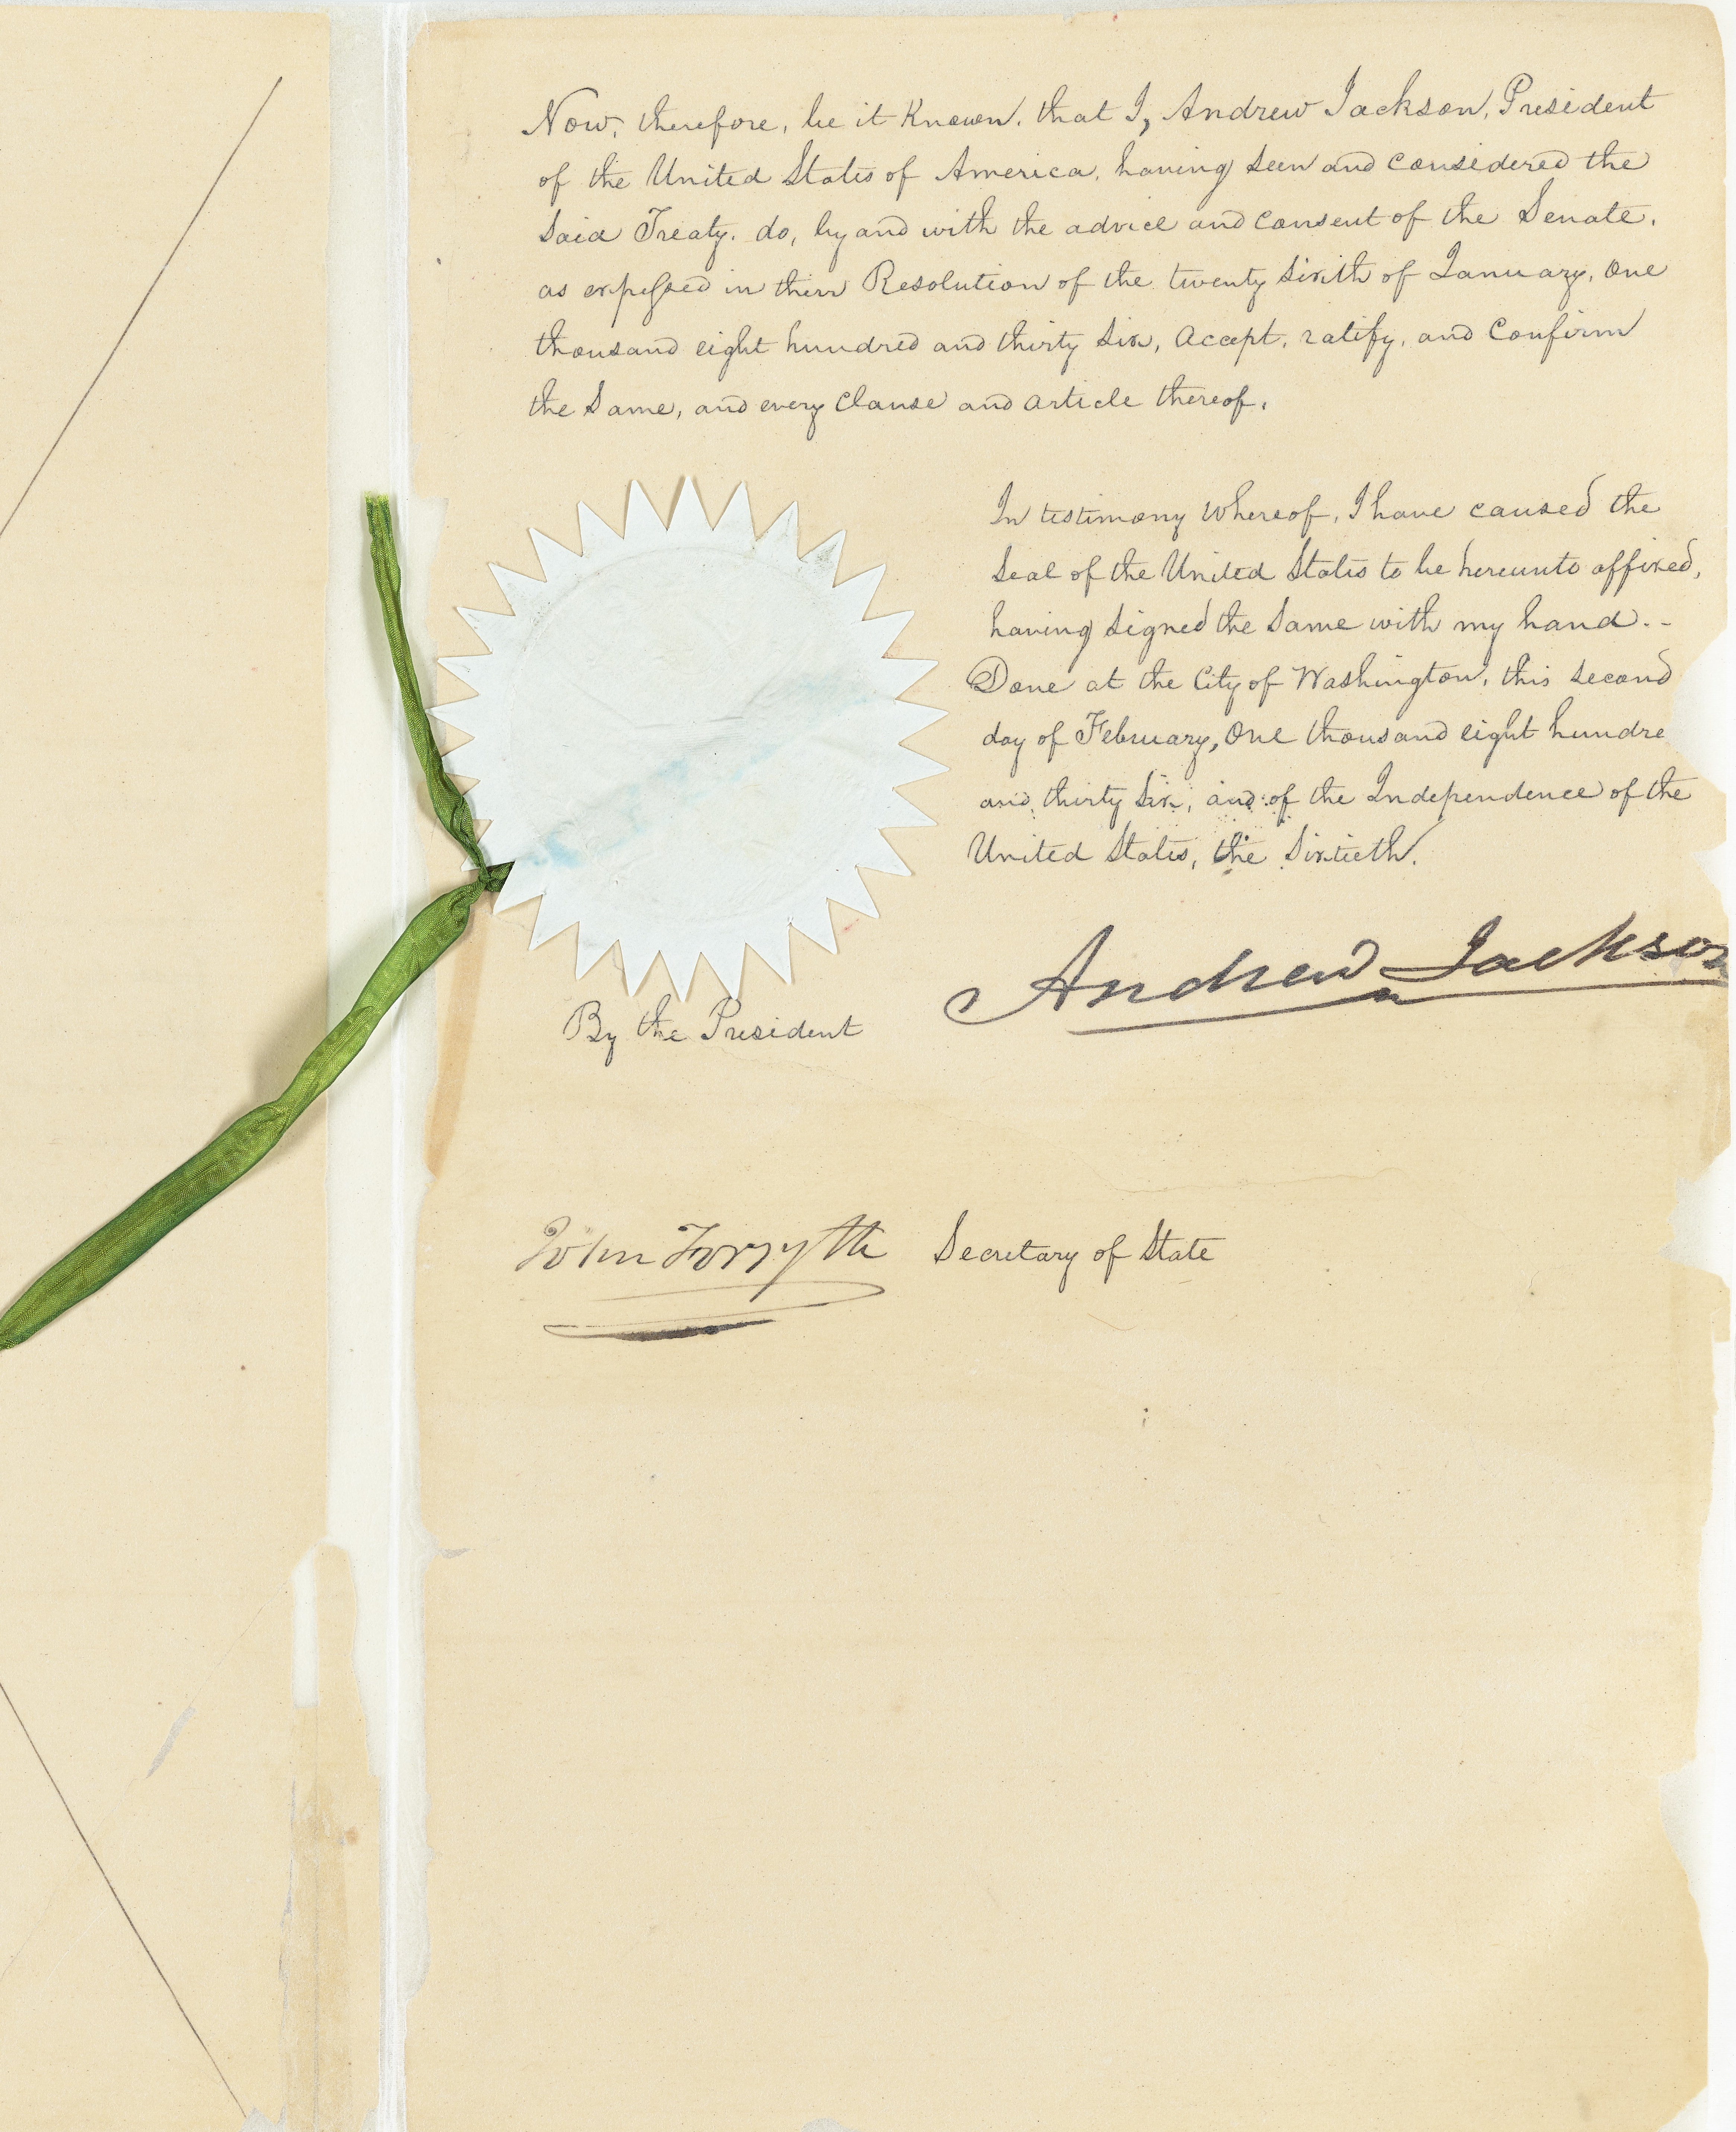 Now, therefore, be it Known, that I, Andrew Jackson, President
of the United States of America, having seen and considered the
said Treaty, do, by and with the advice and consent of the Senate,
as expressed in their Resolution of the twenty sixth of January, one
thousand eight hundred and thirty six, accept, ratify, and confirm
the same, and every clause and article thereof.
In testimony whereof, I have caused the
seal of the United States to be hereunto affixed,
having signed the same with my hand. -
Done at the City of Washington, this second
day of February, one thousand eight hundre
and thirty six, and of the Independence of the
United States, the Sixtieth.
Andrew Jackson
By the President
John Forsyth Secretary of State